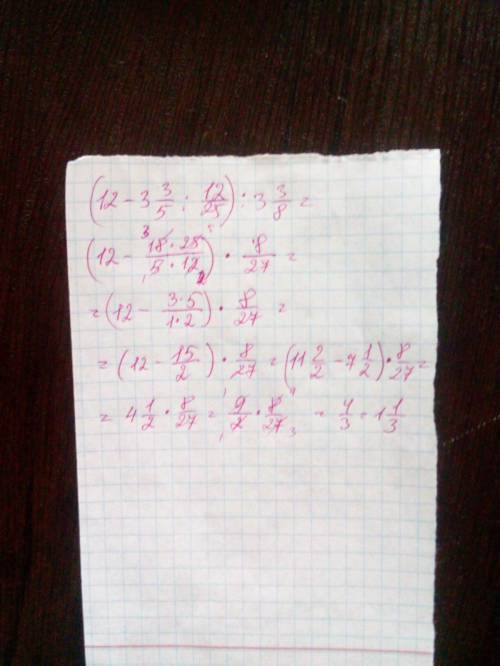 (12 - 3 3/5 : 12/25) : 3 3/8 =
(12 - 18·25/5·12) · 8/27 =
= (12 - 3·5/1·2) · 8/27 =
= (12 - 15/2) · 8/27 = (11 2/2 - 7 1/2) · 8/27 =
= 4 1/2 · 8/27 = 9/2 · 8/27 = 4/3 = 1 1/3